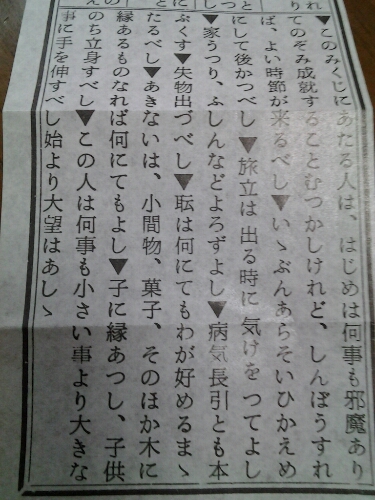 ▼このみくじにあたる人は、はじめは何事も邪魔あり
てのぞみ成就することむつかしけれど、しんぼうすれ
ば、よい時節が来るべし▼いゝぶんあらそいひかえめ
にして後かつべし▼旅立は出る時に気けをつてよし
▼家うつり、ふしんなどよろずよし▼病気長引とも本
ぷくす▼失物出づべし▼転は何にてもわが好めるまゝ
たるべし▼あきないは、小間物、菓子、そのほか木に
縁あるものなれば何にてもよし▼子に縁あつし、子供
のち立身すべし▼この人は何事も小さい事より大きな
事に手を伸すべし始より大望はあしゝ